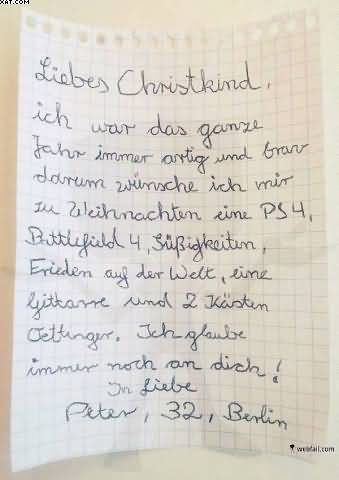 XAT.COM
Liebes Christkind,
ich war das ganze
Jahr immer artig und brav
darum wünsche ich mir
zu Weihnachten eine PS4,
Battlefield 4, Süßigkeiten,
Frieden auf der Welt, eine
Gitarre und 2 Kästen
Oettinger. Ich glaube
immer noch an dich!
In Liebe
Peter, 32, Berlin
webfail.com